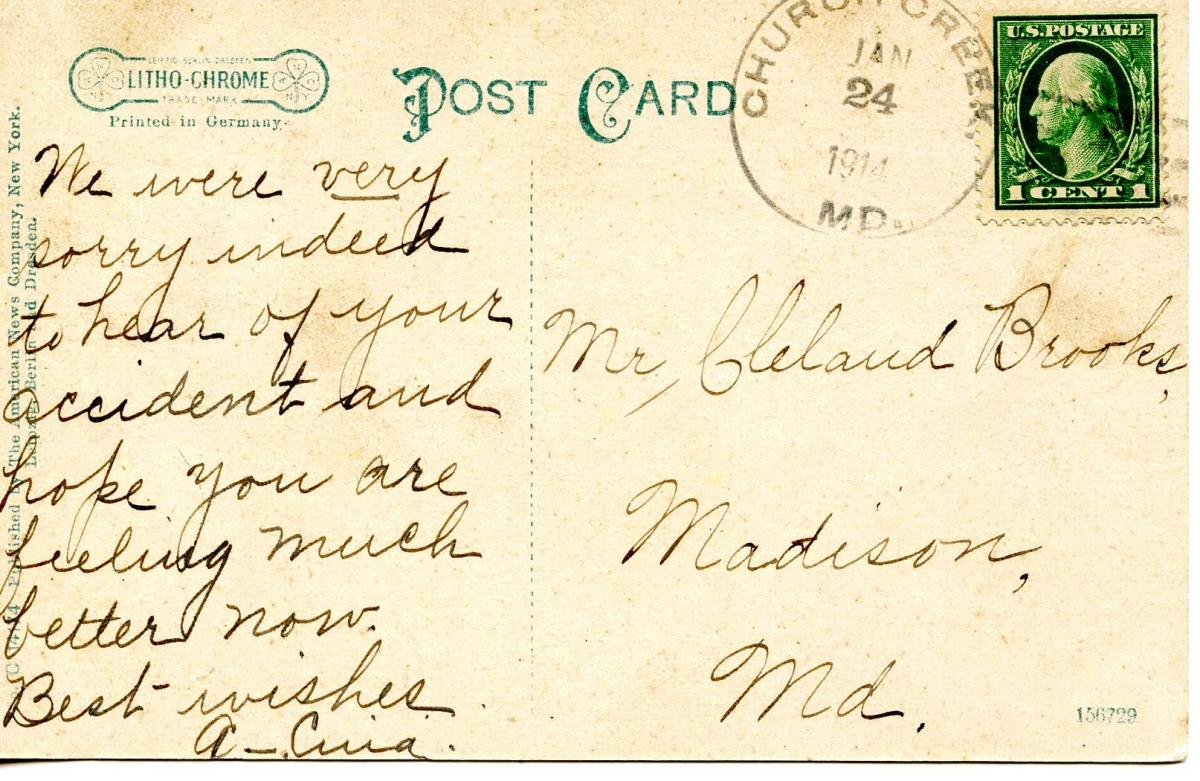 LEIPZIG·BERLIN·DRESDEN
LITHO-CHROME
TRADE-MARK
N Y
Printed in Germany.
POST CARD
CHURCH CREEK,
JAN
24
1914
MD.
U.S. POSTAGE
1 CENT 1
We were very
sorry indeed
to hear of your
accident and
hope you are
feeling much
better now.
Best wishes.
Mr, Cleland Brooks,
Madison,
Md.
Published by The American News Company, New York.
Leipzig, Berlin and Dresden.
156729